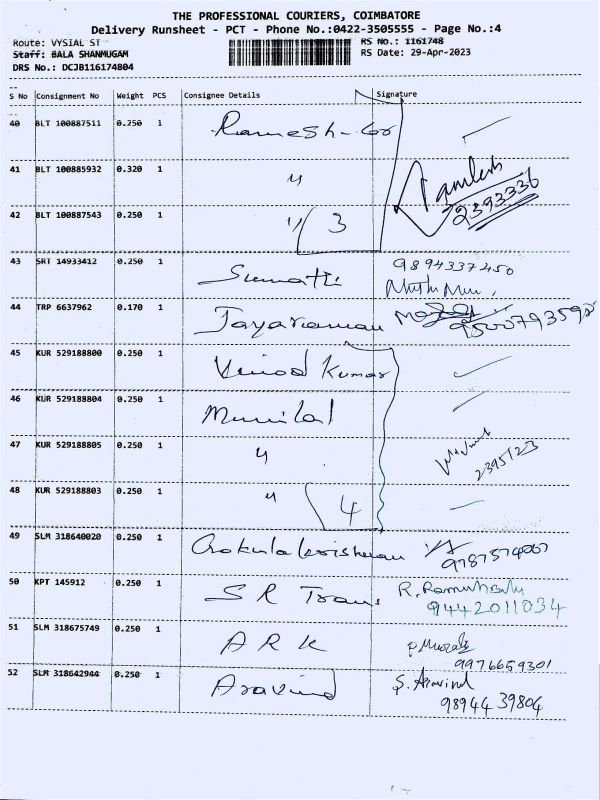 THE PROFESSIONAL COURIERS, COIMBATORE
Delivery Runsheet - PCT - Phone No.:0422-3505555 - Page No.:4
Route: VYSIAL ST RS No.: 1161748
Staff: BALA SHANMUGAM RS Date: 29-Apr-2023
DRS No.: DCJB116174804
S No Consignment No Weight PCS Consignee Details Signature
40 BLT 100887511 0.250 1 Ramesh-
41 BLT 100885932 0.320 1 "
2393336
42 BLT 100887543 0.250 1 " 3
43 SRT 14933412 0.250 1 Sumathi 9894337450
44 TRP 6637962 0.170 1 Jayaraman 9500793598
45 KUR 529188800 0.250 1 Vinod Kumar
46 KUR 529188804 0.250 1 Munilal
47 KUR 529188805 0.250 1 " 2395123
48 KUR 529188803 0.250 1 " 4
49 SLM 318640020 0.250 1 9787574007
50 KPT 145912 0.250 1 S R Trans R.
9442011034
51 SLM 318675749 0.250 1 A R K P Murali
9976659301
52 SLM 318642944 0.250 1 Aravind S. Aravind
98944 39804